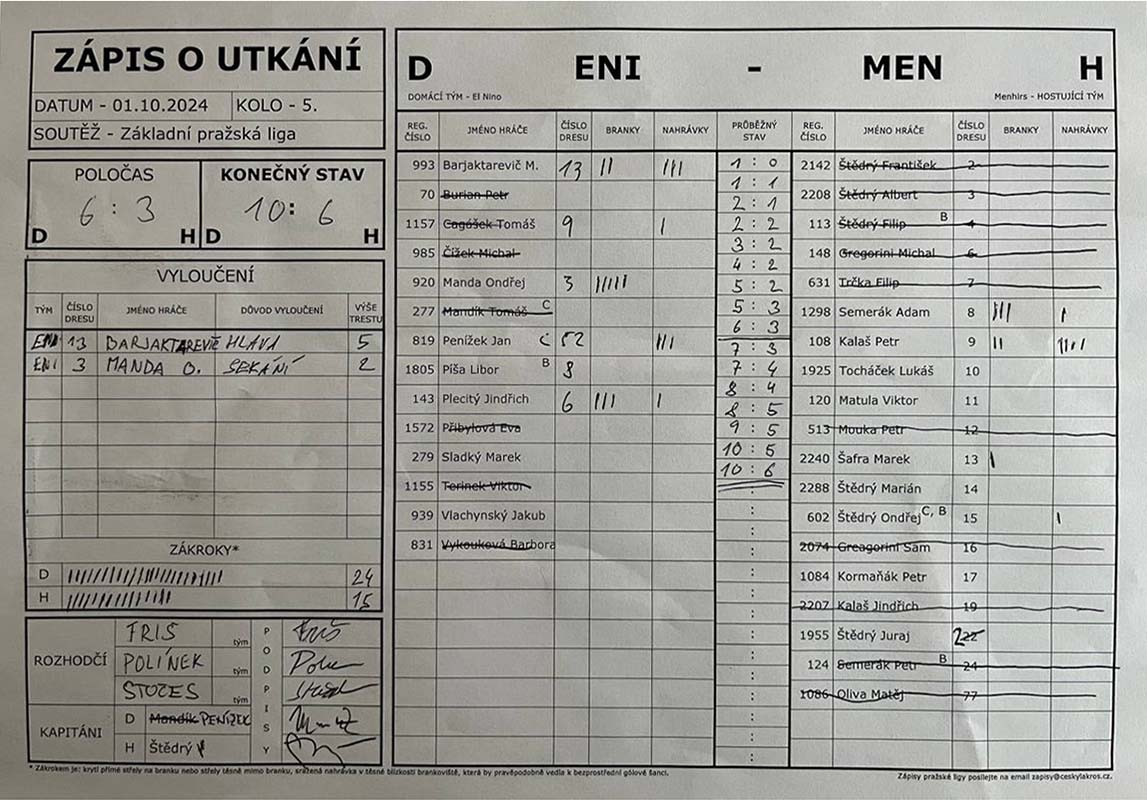 ZÁPIS O UTKÁNÍ
DATUM - 01.10.2024 KOLO - 5.
SOUTĚŽ - Základní pražská liga
POLOČAS KONEČNÝ STAV
6 : 3 10: 6
D H D H
VYLOUČENÍ
TÝM ČÍSLO DRESU JMÉNO HRÁČE DŮVOD VYLOUČENÍ VÝŠE TRESTU
ENI 13 BARJAKTAREVIČ HLAVA 5
ENI 3 MANDA O. SEKÁNÍ 2
ZÁKROKY*
D 24
H 15
ROZHODČÍ
FRIŠ tým
POLÍNEK tým
STOZES tým
PODPISY
KAPITÁNI
D Mandík PENÍZEK
H Štědrý
D ENI - MEN H
DOMÁCÍ TÝM - El Nino Menhirs - HOSTUJÍCÍ TÝM
REG. ČÍSLO JMÉNO HRÁČE ČÍSLO DRESU BRANKY NAHRÁVKY PRŮBĚŽNÝ STAV REG. ČÍSLO JMÉNO HRÁČE ČÍSLO DRESU BRANKY NAHRÁVKY
993 Barjaktarevič M. 13 || |||
70 Burian Petr
1157 Cagášek Tomáš 9 |
985 Čížek Michal
920 Manda Ondřej 3 |||||
277 Mandík Tomáš C
819 Penížek Jan C 52 |||
1805 Píša Libor B 8
143 Plecitý Jindřich 6 ||| |
1572 Přibylová Eva
279 Sladký Marek
1155 Terinek Viktor
939 Vlachynský Jakub
831 Vykouková Barbora
1 : 0
1 : 1
2 : 1
2 : 2
3 : 2
4 : 2
5 : 2
5 : 3
6 : 3
7 : 3
7 : 4
8 : 4
8 : 5
9 : 5
10 : 5
10 : 6
2142 Štědrý František 2
2208 Štědrý Albert 3
113 Štědrý Filip B 4
148 Gregorini Michal 6
631 Trčka Filip 7
1298 Semerák Adam 8 ||| |
108 Kalaš Petr 9 || ||||
1925 Tocháček Lukáš 10
120 Matula Viktor 11
513 Mouka Petr 12
2240 Šafra Marek 13 |
2288 Štědrý Marián 14
602 Štědrý Ondřej C, B 15 |
2074 Greagorini Sam 16
1084 Kormaňák Petr 17
2207 Kalaš Jindřich 19
1955 Štědrý Juraj 22
124 Semerák Petr B 24
1086 Oliva Matěj 77
* Zákrokem je: krytí přímé střely na branku nebo střely těsně mimo branku, sražená nahrávka v těsné blízkosti brankoviště, která by pravěpodobně vedla k bezprostřední gólové šanci.
Zápisy pražské ligy posílejte na email zapisy@ceskylakros.cz.